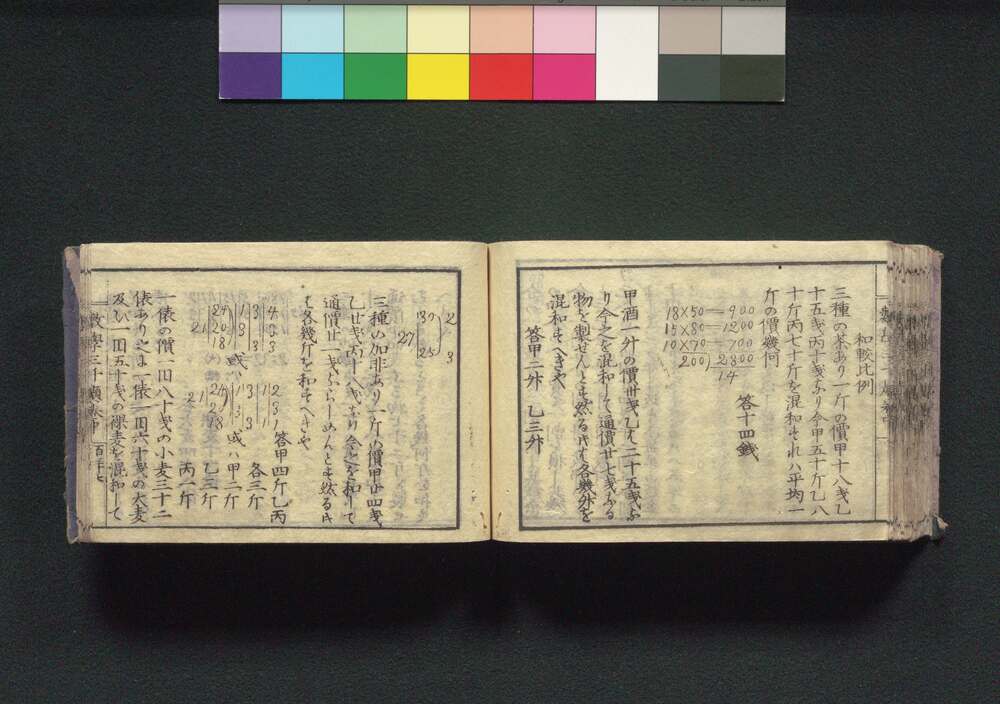 和較比例
三種の茶あり一斤の價甲十八戔乙
十五戔丙十戔なり今甲五十斤乙八
十斤丙七十斤を混和すれハ平均一
斤の價幾何
答十四錢
18×50=900
15×80=1200
10×70=700
200)2800
14
甲酒一升の價卅戔乙は二十五戔な
り今之を混和して通價廿七戔なる
物を製せんとす然るときは各幾升を
混和すべきや
27
30
25
2
3
答甲二升 乙三升
三種の加非あり一斤の價甲廿四戔
乙廿戔丙十八戔なり今之を和して
通價廿一戔ならしめんとす然るときは
各幾斤を和すべきや
21
24
20
18
3
3
4
3
3
或ハ
答甲四斤乙丙
各三斤
或ハ甲二斤
乙三斤
丙一斤
一俵の價一円八十戔の小麦三十二
俵あり之に一俵一円六十戔の大麦
及び一円五十戔の裸麦を混和して